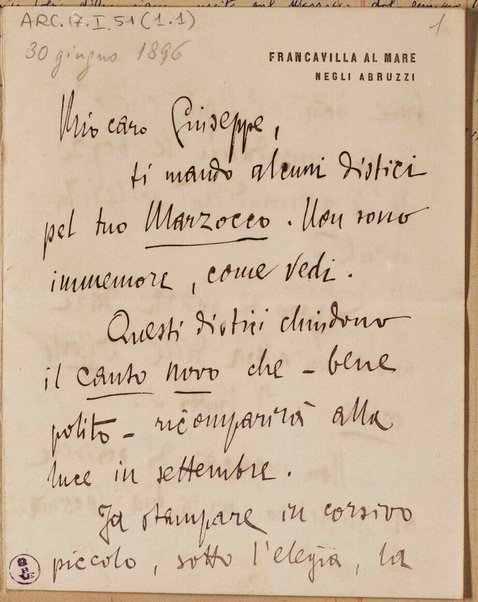 ARC.17.I.51(1.1)
1
30 giugno 1896
FRANCAVILLA AL MARE
NEGLI ABRUZZI
Mio caro Giuseppe,
ti mando alcuni distici
pel tuo Marzocco. Non sono
immemore, come vedi.
Questi distici chiudono
il canto novo che – bene
polito – ricomparirà alla
luce in settembre.
Fa stampare in corsivo
piccolo, sotto l'elegia, la